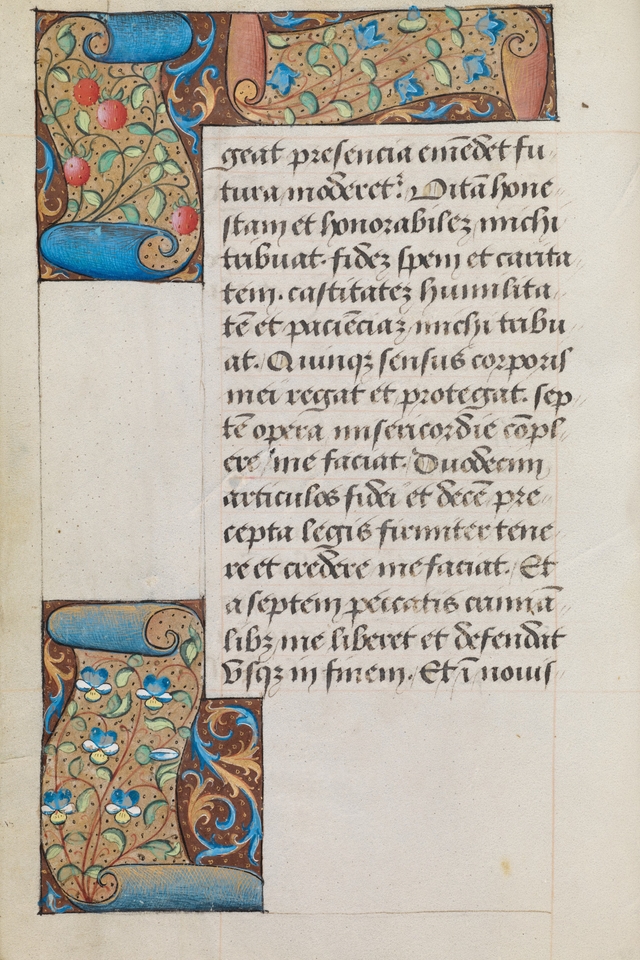 geat presencia emēdet fu
tura moderet². Vitā hone
stam et honorabilez michi
tribuat. fidez spem et carita
tem. castitatez humilita
tē et paciēciaz michi tribu
at. Quinqz sensus corporis
mei regat et protegat. sep
tē opera misericordie cōpl
ere me faciat. Duodecim
articulos fidei et decē pre
cepta legis firmiter tene
re et credere me faciat. Et
a septem peccatis crimīa
libz me liberet et defendat
vsqz in finem. Et ī nouis